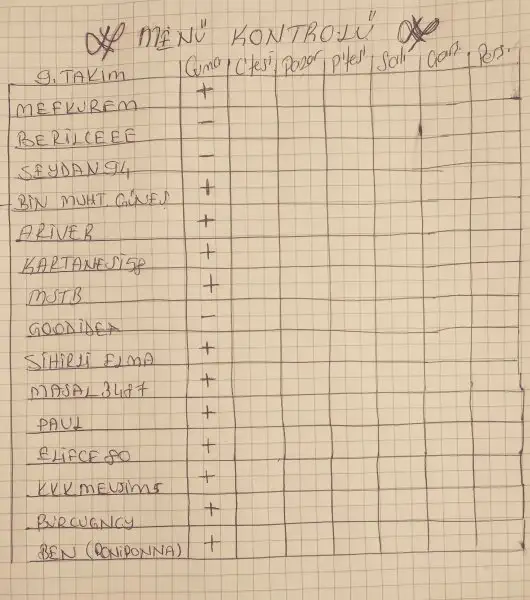 MENÜ KONTROLÜ
9. TAKIM Cuma C'tesi Pazar P'tesi Salı Çarş. Perş.
MEFKUREM +
BERİLCEEE -
SEYDAN94 -
BİN MUHT. GÜNEŞ +
ARİVER +
KARTANESİ58 +
MSTB +
GOODİDEA -
SİHİRLİ ELMA +
MASAL3487 +
PAUL +
ELİFCE80 +
KVKMEVSİM5 +
BİRCUGNCY +
BEN (PONİPONNA) +